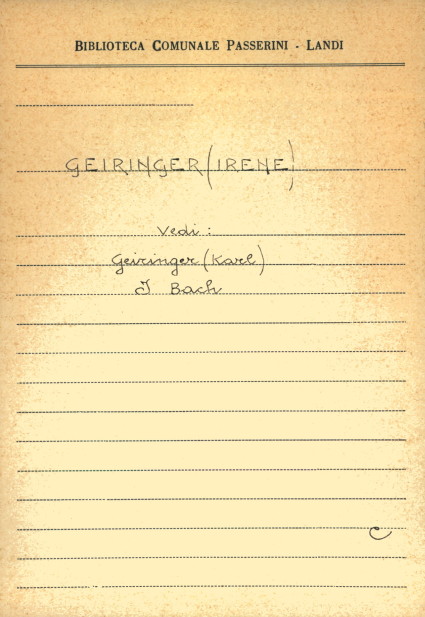 BIBLIOTECA COMUNALE PASSERINI - LANDI
GEIRINGER (IRENE)
Vedi :
Geiringer (Karl)
I Bach
C